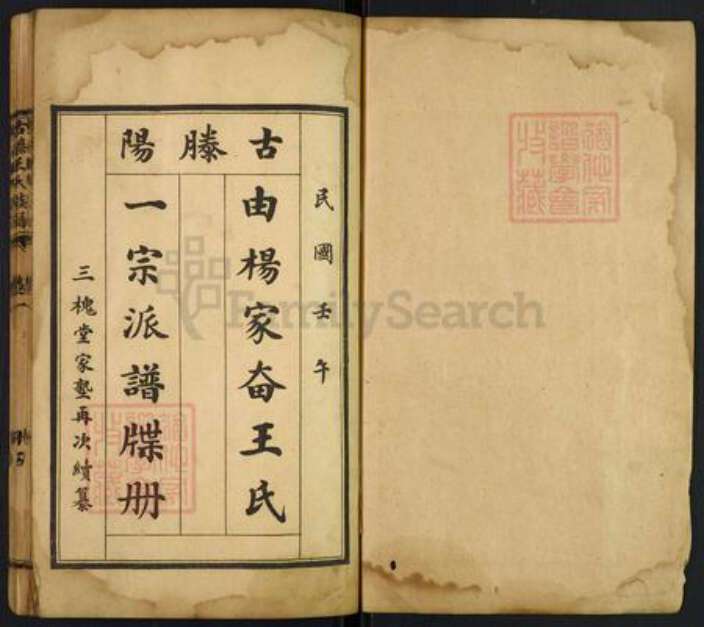 民國壬午
古滕陽
由楊家奋王氏
一宗派譜牒册
三槐堂家塾再次續纂
FamilySearch